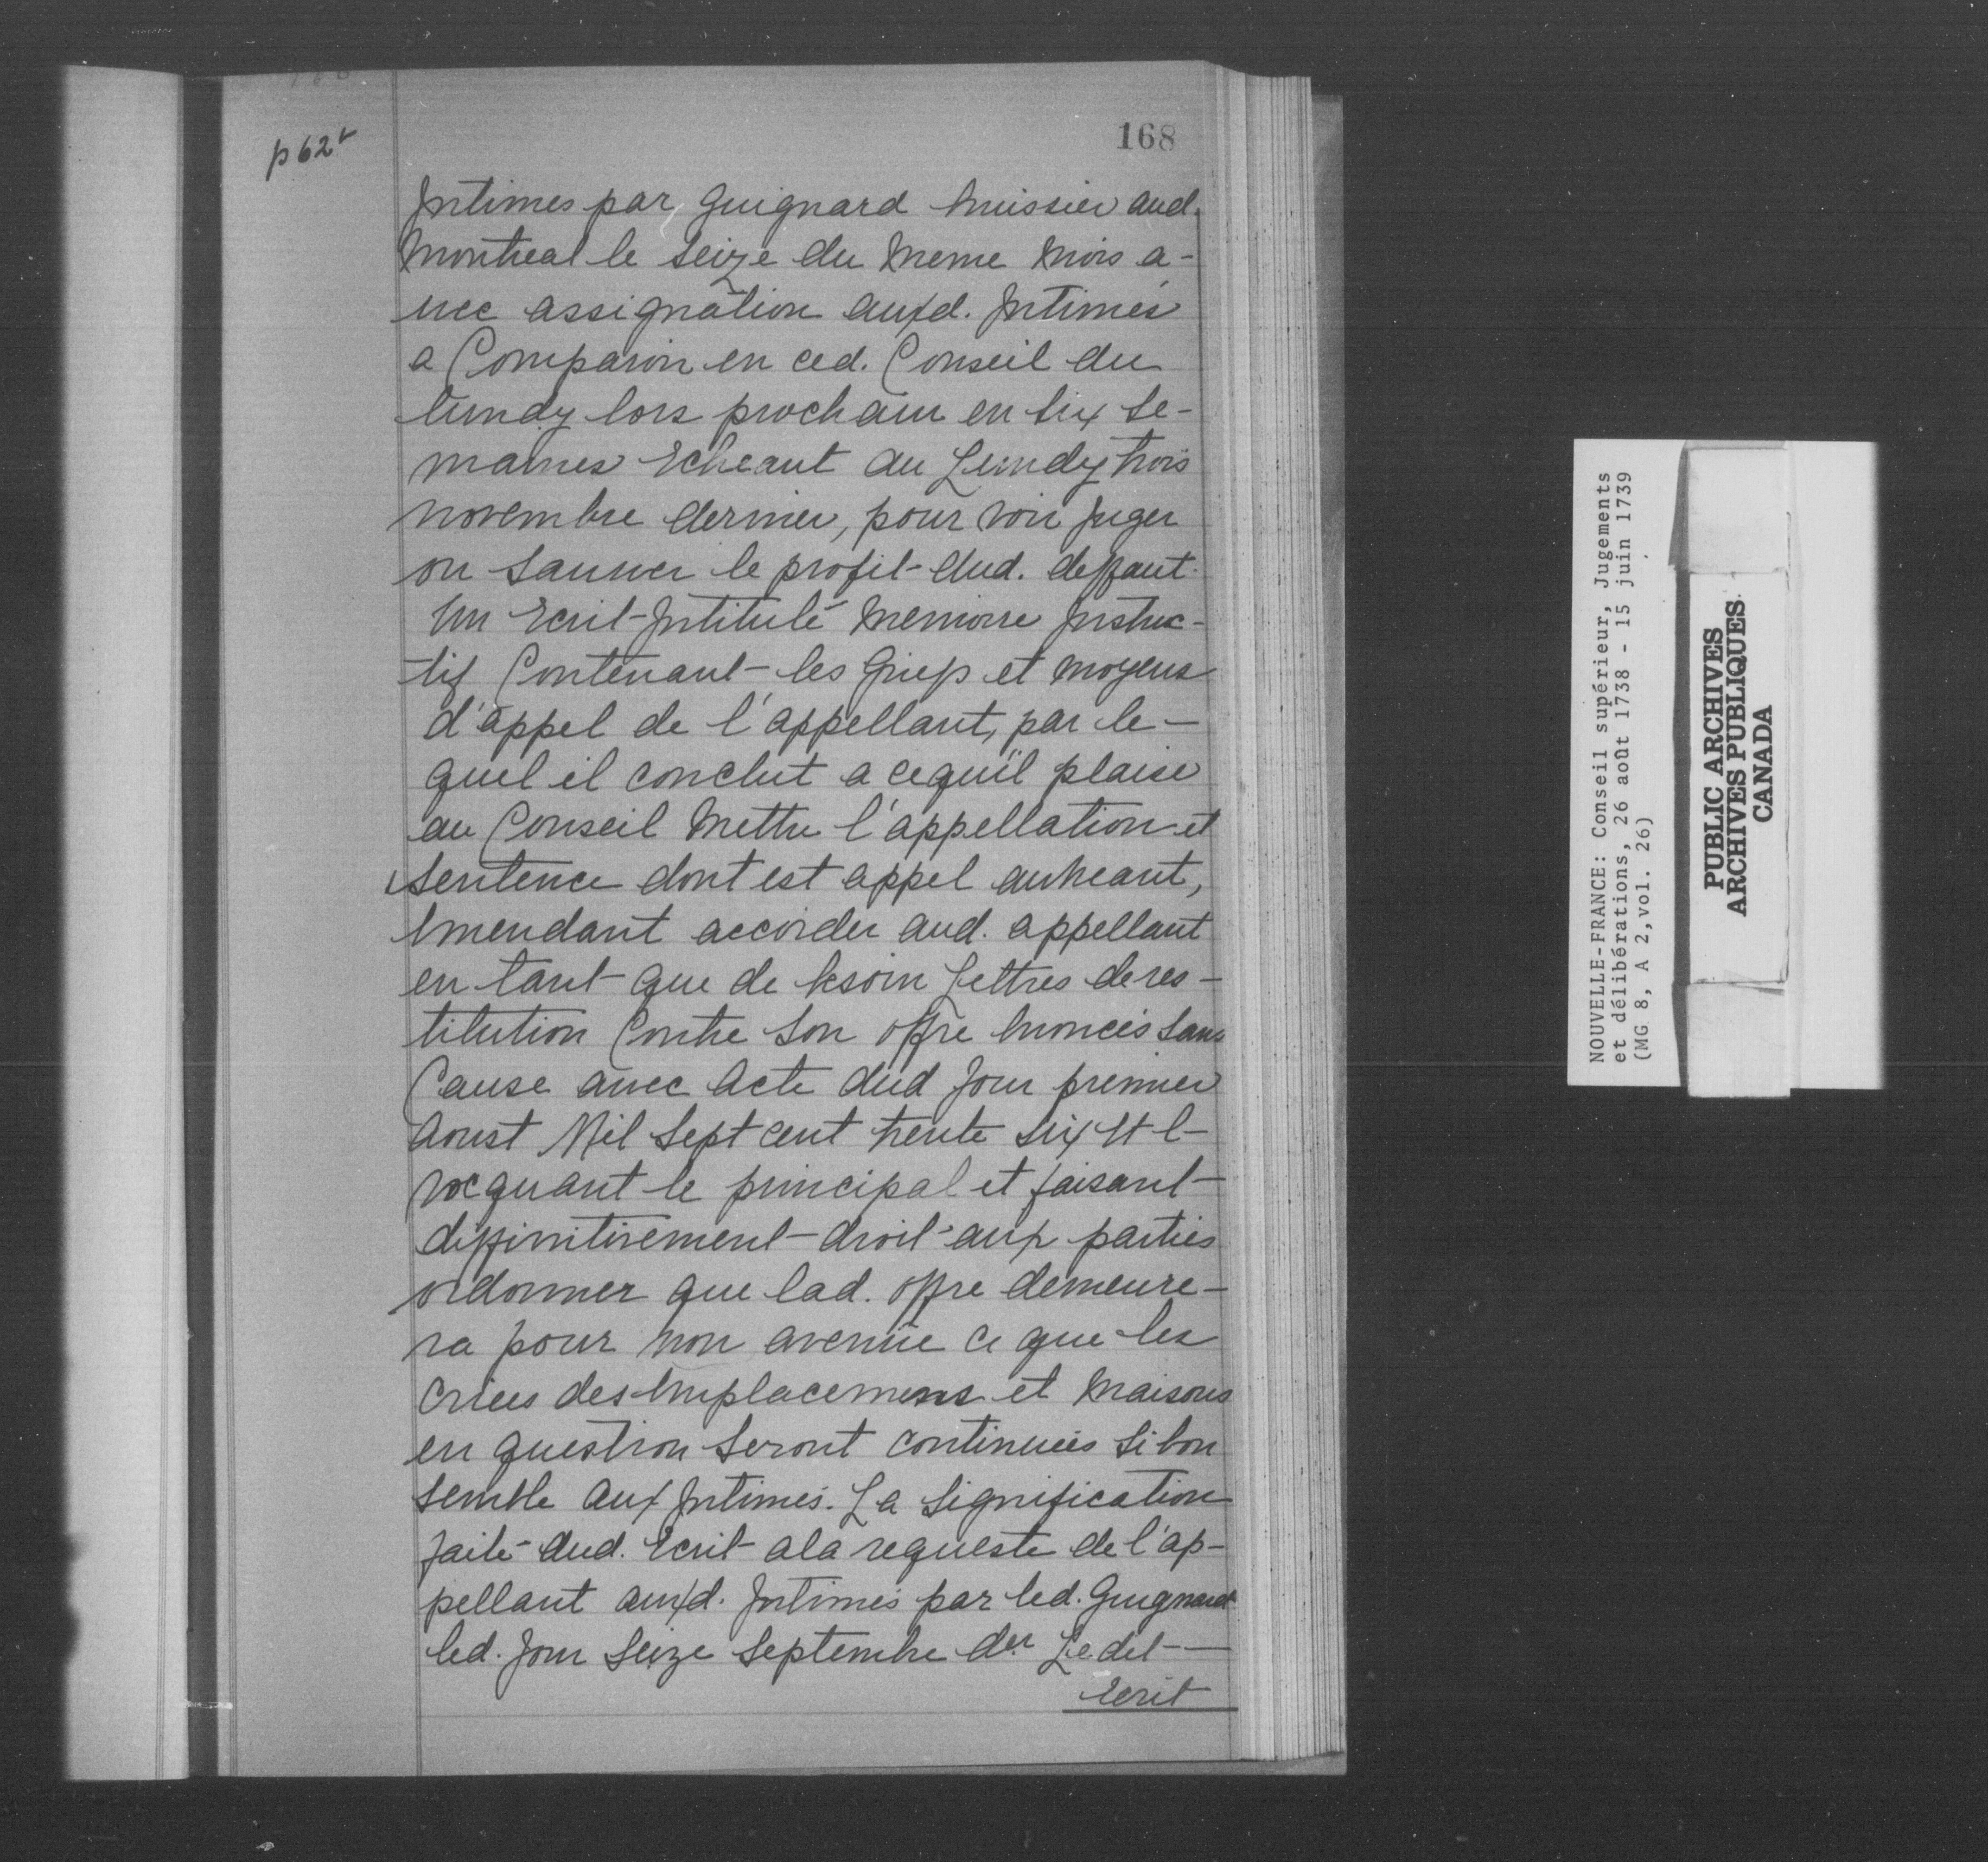 p 62v
168
Intimes par Guignard huissier aud.
Montreal le seize du meme mois a-
uec assignation auxd. Intimés
a Comparoir en ced. Conseil du
lundy lors prochain en six se-
maines Echeant au Lundy trois
novembre dernier, pour voir juger
ou sauuer le profit dud. deffaut.
Un Ecrit Intitulé Memoire Instruc-
tif Contenant les Griefs et moyens
d'appel de l'appellant, par le-
quel il conclut a cequ'il plaise
au Conseil Mettre l'appellation et
Sentence dont est appel au neant,
Emendant accorder aud. appellant
en tant que de besoin Lettres de res-
titution Contre son offre Enoncés sans
Cause avec Acte dud Jour premier
Aoust Mil Sept cent trente six Et E-
vocquant le principal et faisant
diffinitivement droit aux parties
ordonner que lad. offre demeure-
ra pour non avenüe ce que les
criées des Emplacemens et Maisons
en question seront continuées si bon
semble aux Intimés. La Signification
faite dud. Ecrit ala requeste de l'ap-
pellant auxd. Intimés par led. Guignard
led. Jour Seize Septembre der Ledit
Ecrit
NOUVELLE-FRANCE: Conseil supérieur, Jugements
et délibérations, 26 août 1738 - 15 juin 1739
(MG 8, A 2, vol. 26)
PUBLIC ARCHIVES
ARCHIVES PUBLIQUES
CANADA